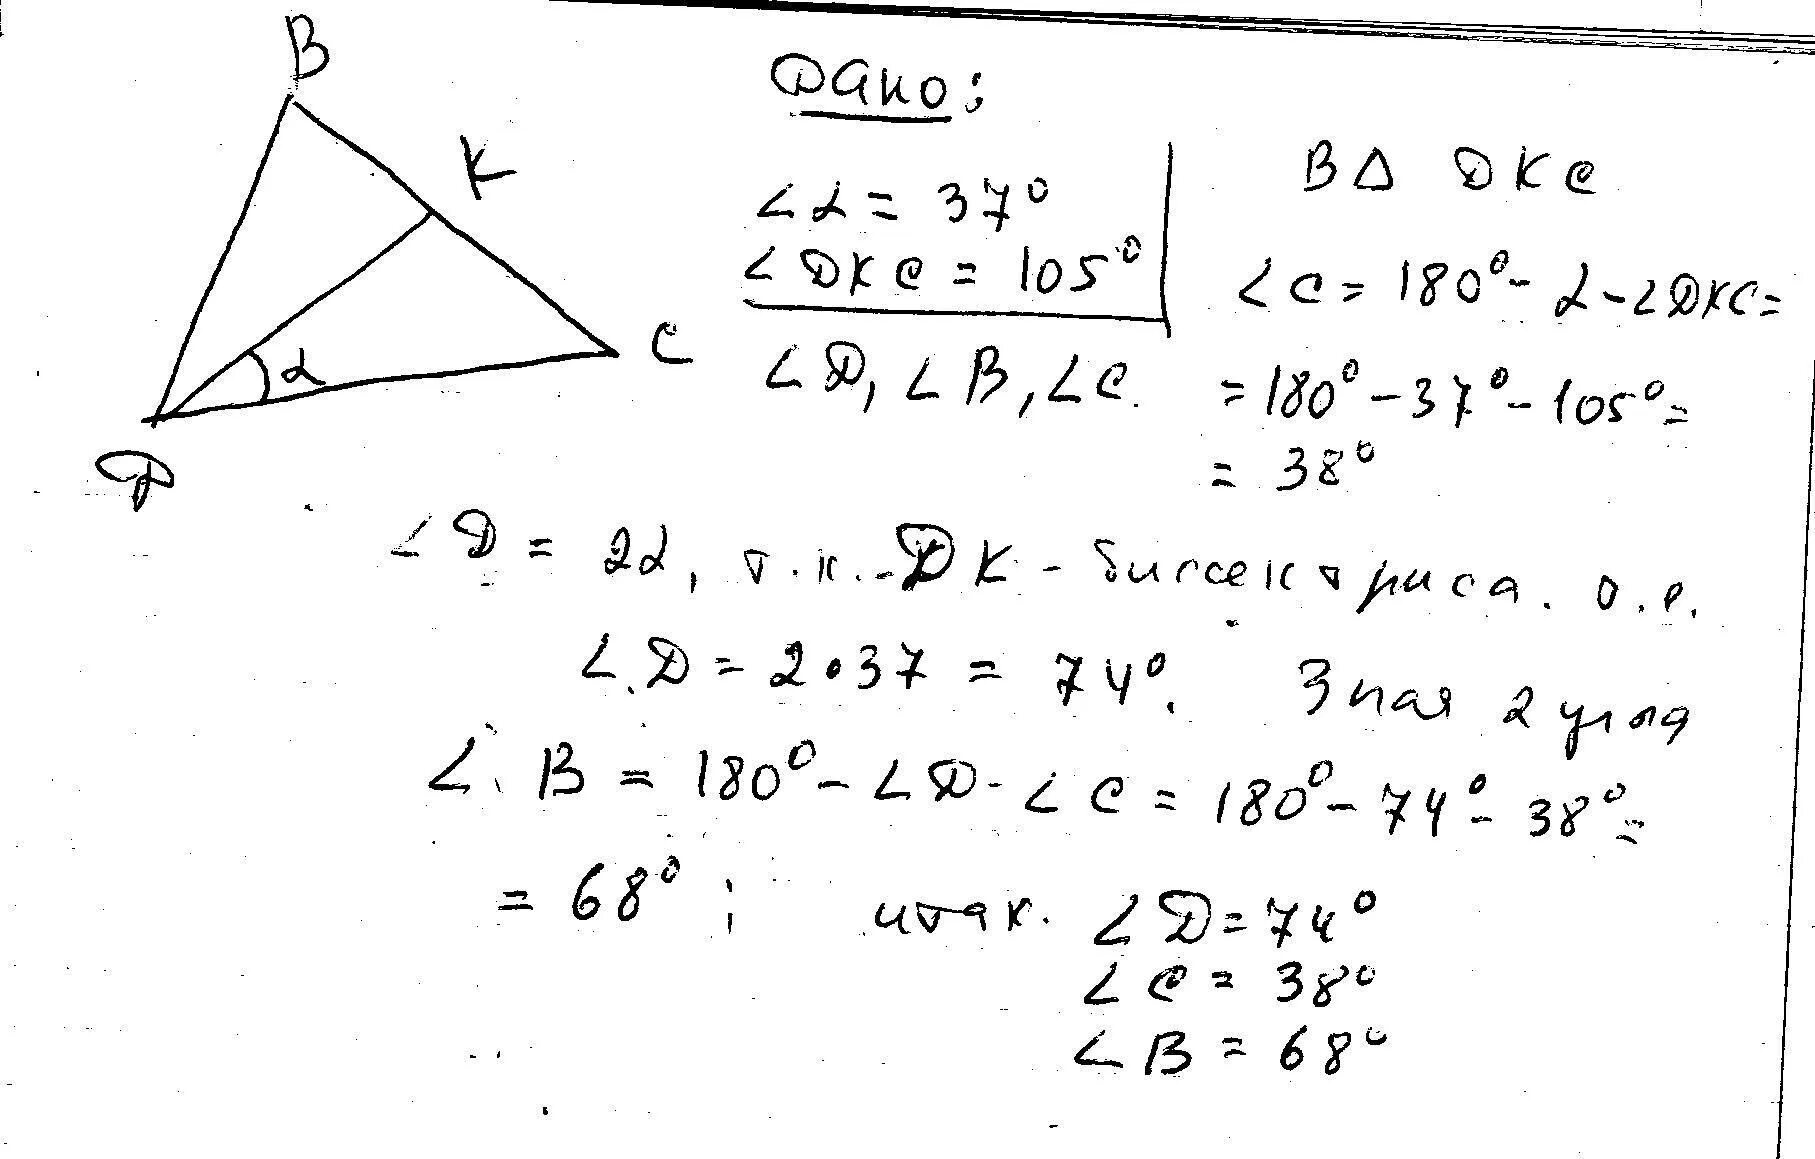 B
K
C
D
α
Дано:
∠α = 37°
∠DKC = 105°
∠D, ∠B, ∠C.
В Δ DKC
∠C = 180° - α - ∠DKC =
= 180° - 37° - 105° =
= 38°
∠D = 2α, т.к. DK - биссектриса. т.е.
∠D = 2•37 = 74°. Зная 2 угла
∠B = 180° - ∠D - ∠C = 180° - 74° - 38° =
= 68° ; итак. ∠D = 74°
∠C = 38°
∠B = 68°